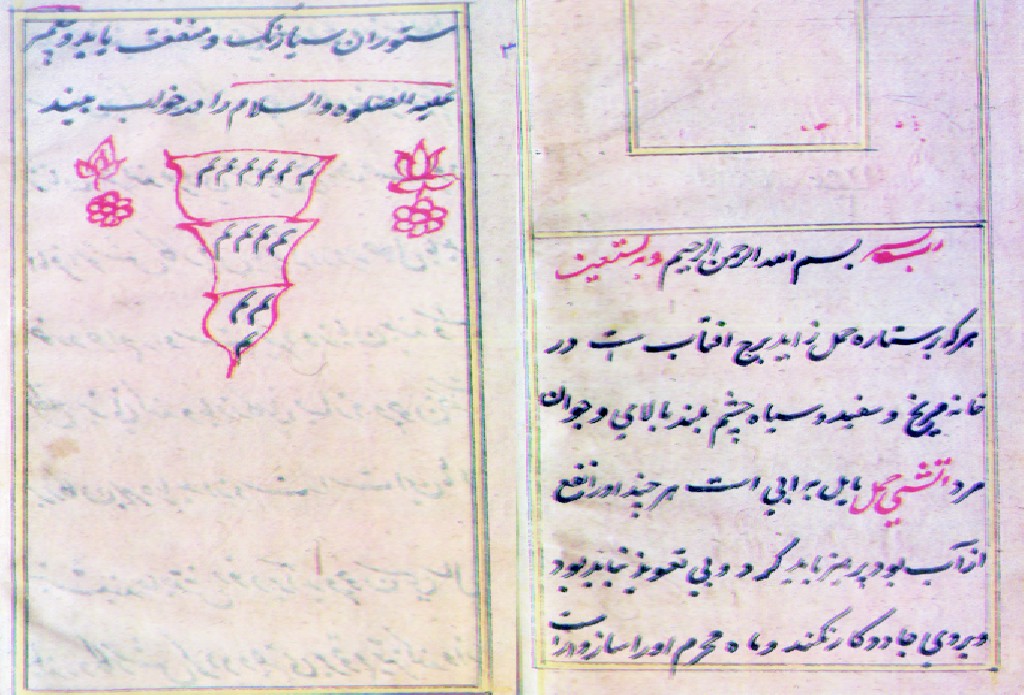 بسم الله الرحمن الرحیم وبه نستعین
هرکه بستاره حمل زاید برج افتاب است در
خانه مریخ و سفید و سیاه چشم بلند بالای و جوان
مرد اتشی حمل مایل بر ابی است هر چند او را نفع
افتاب بود پرهیز باید کرد و بی تعویذ نباید بود
و بروی جادو کار نکند و ماه محرم او را سازوار است
ستوران سیاه رنک و منفعت یابد و پیغمبر
علیه الصلوه و السلام را در خواب بیند
م م م م م م
م م م م
م م
م